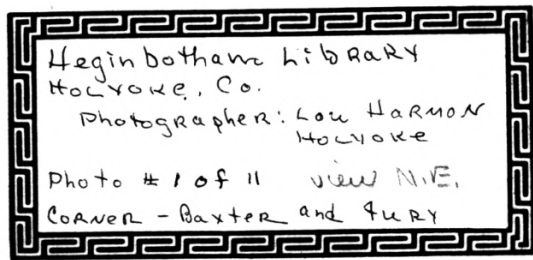 Heginbotham Library
Holyoke, Co.
Photographer: Lou Harmon
Holyoke
Photo # 1 of 11 view N.E.
Corner - Baxter and Fury